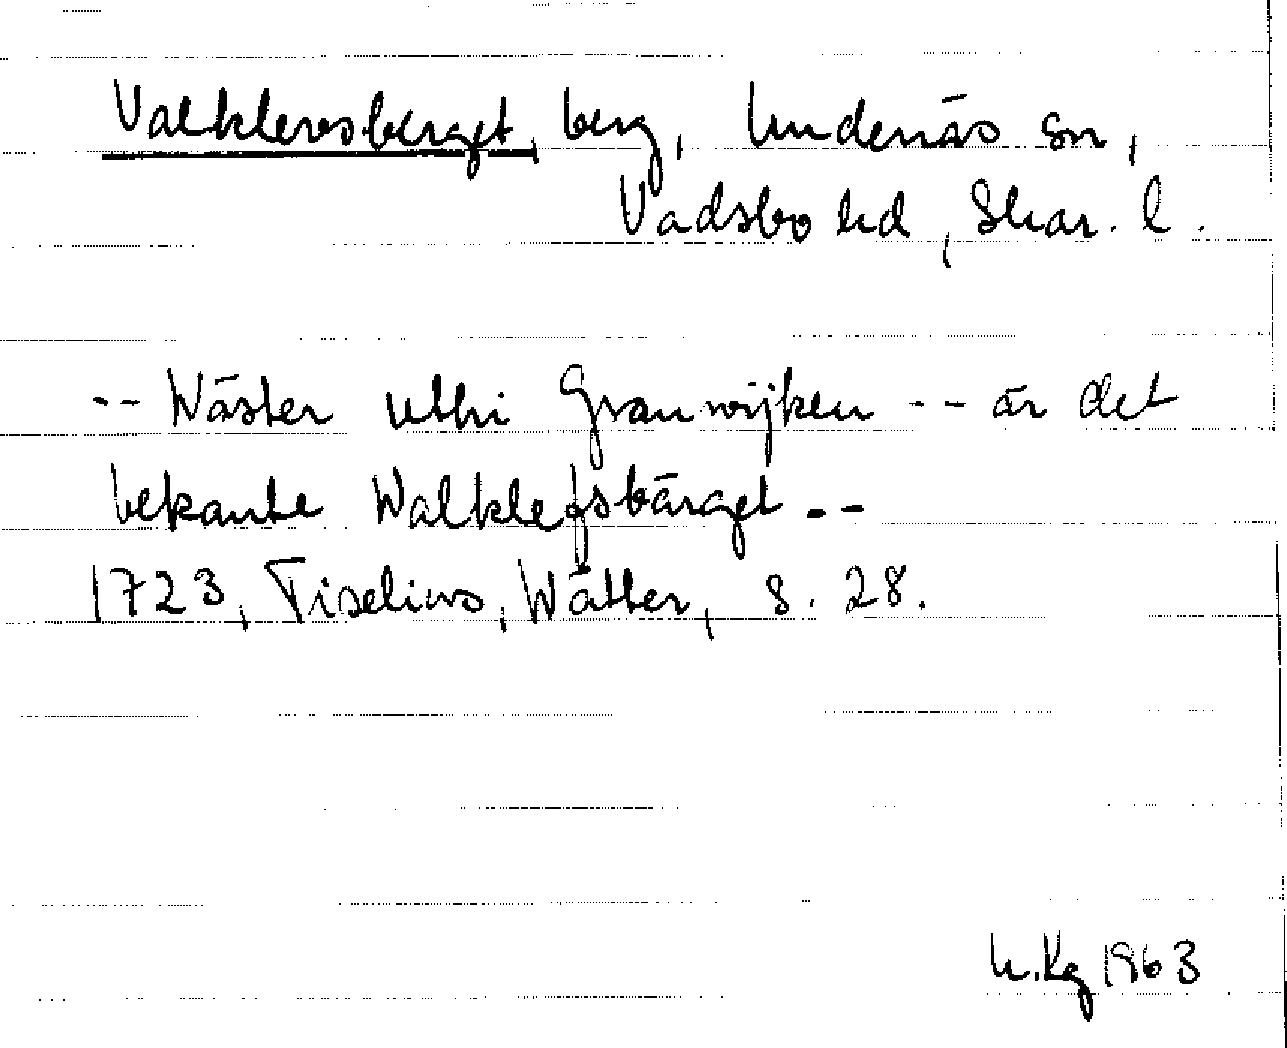 Valklevsberget, berg, Undenäs sn,
Vadsbo hd, Skar. l.
-- Wäster uthi Granwijken -- är det
bekante Walklefsbärget --
1723, Tiselius, Wätter, s. 28.
U.Kg 1963